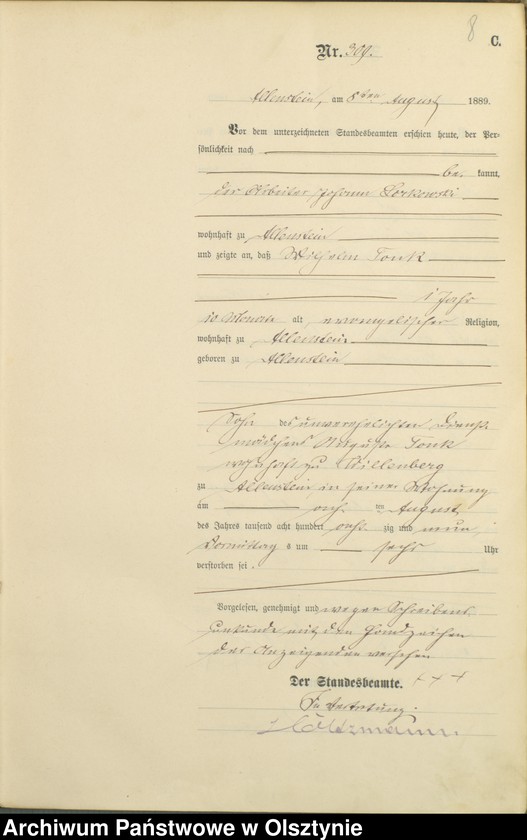 8
C.
Nr. 309.
Allenstein, am 8ten August 1889.
Vor dem unterzeichneten Standesbeamten erschien heute, der Per-
sönlichkeit nach
be kannt,
der Arbeiter Johann
wohnhaft zu Allenstein
und zeigte an, daß Wilhelm Tonk
1 Jahr
10 Monate alt, evangelischer Religion,
wohnhaft zu Allenstein
geboren zu Allenstein
Sohn der unverehelichten Dienst-
mädchens Auguste Tonk
wohnhaft zu Willenberg
zu Allenstein in seiner Wohnung
am acht ten August
des Jahres tausend acht hundert acht zig und neun,
Vormittag s um sechs Uhr
verstorben sei.
Vorgelesen, genehmigt und wegen Schreibens
unkunde mit dem Handzeichen
des Anzeigenden versehen
+++
Der Standesbeamte.
In Vertretung.
Archiwum Państwowe w Olsztynie